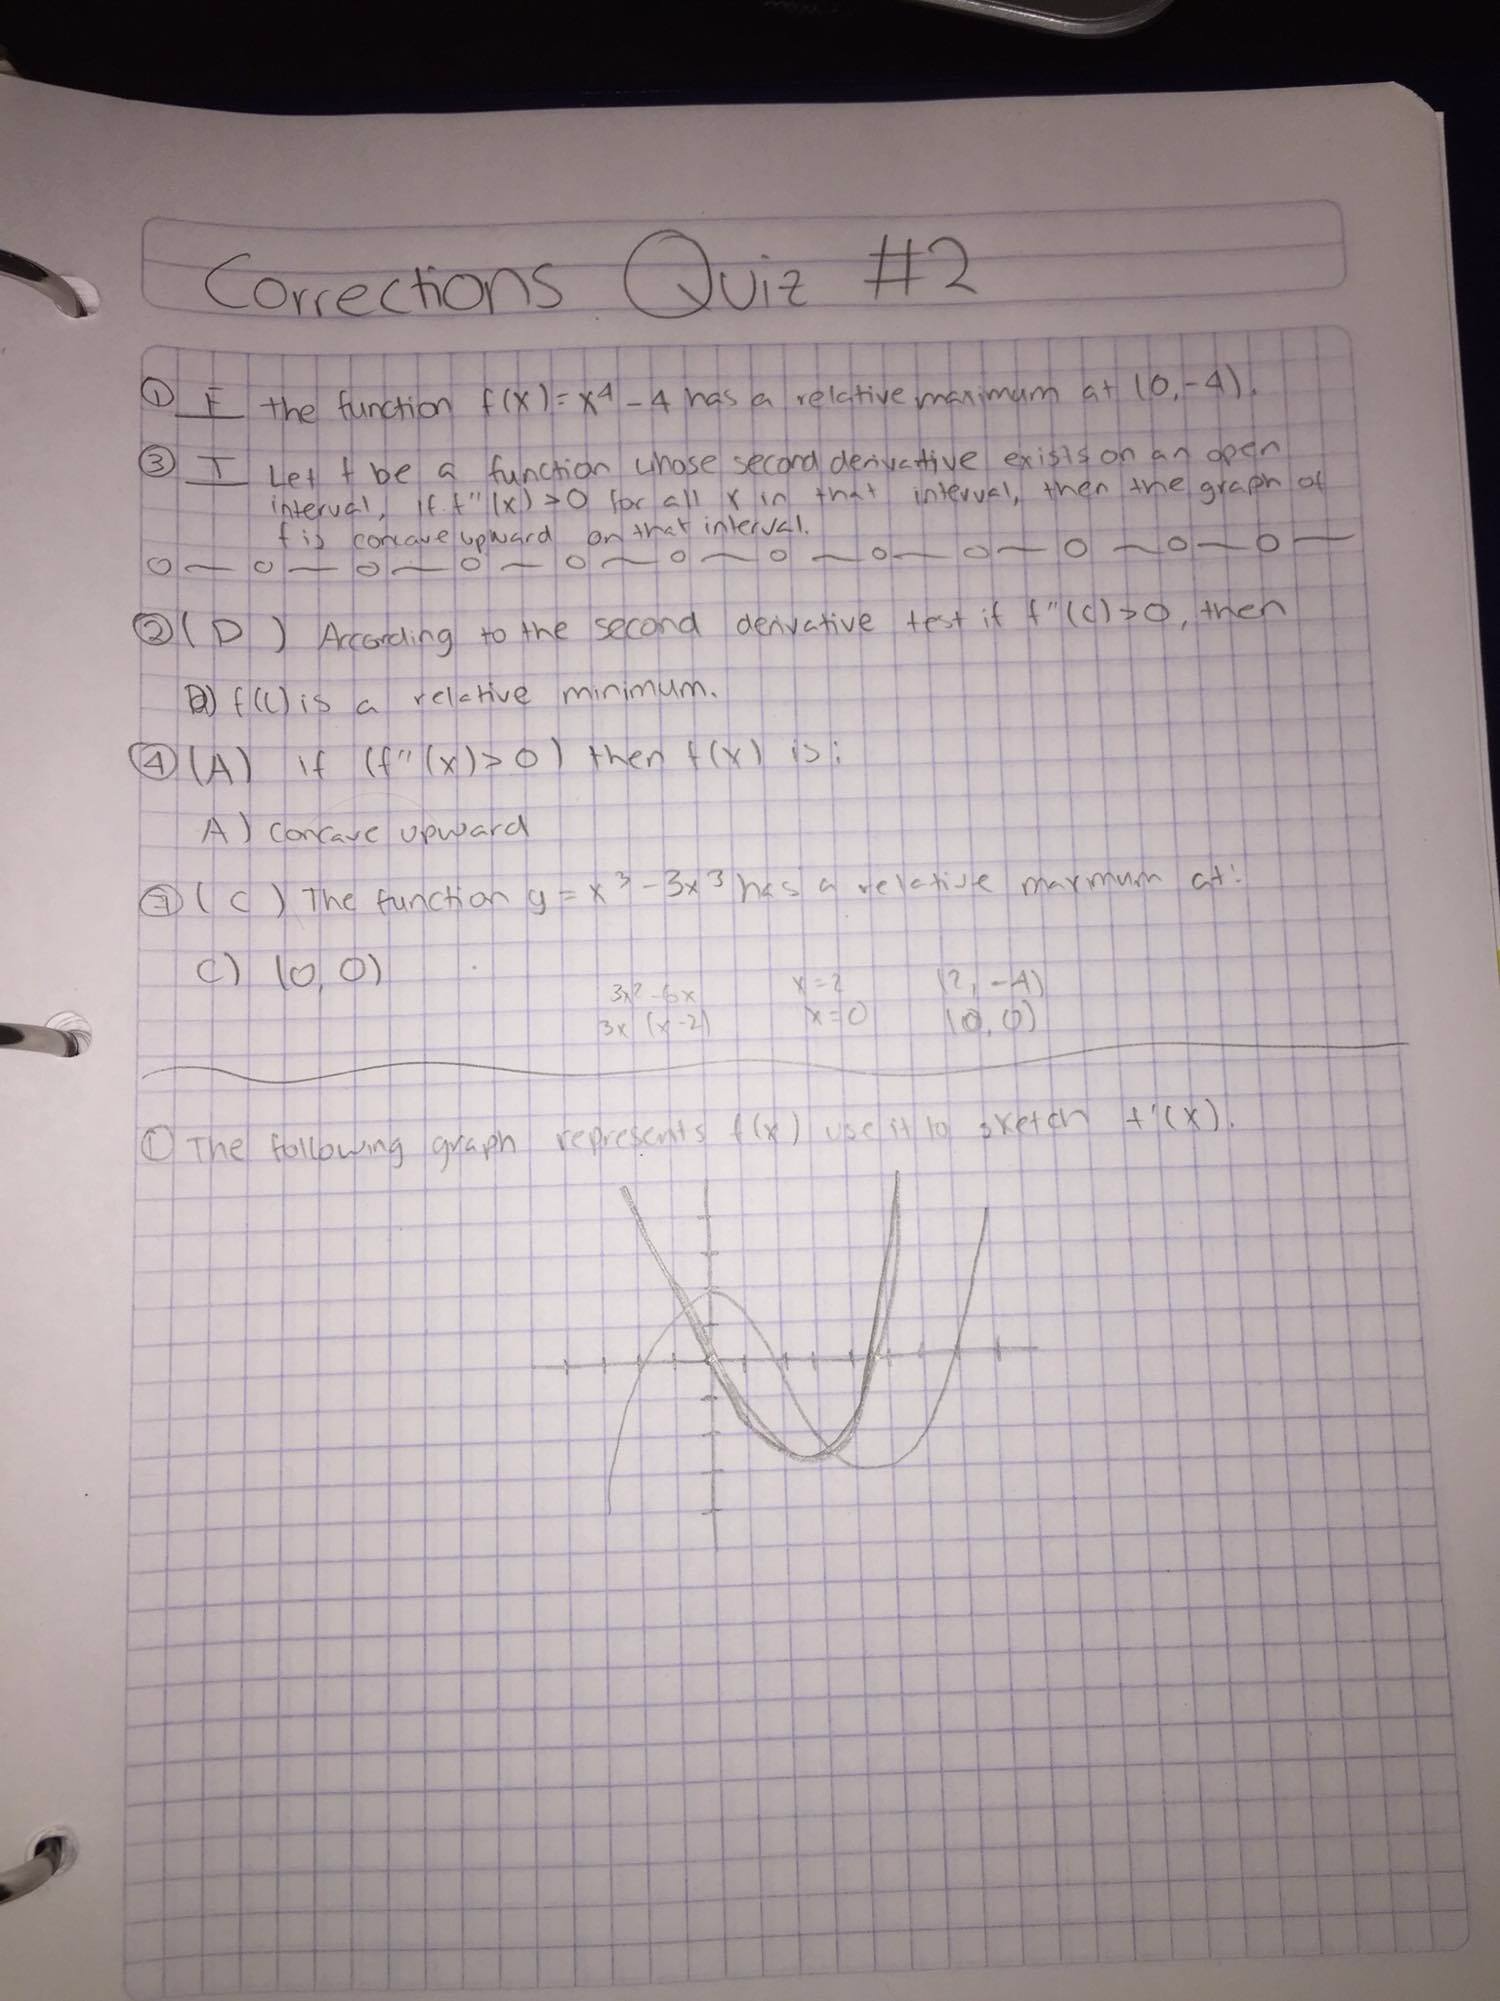 Corrections Quiz #2
① F the function f(x) = x⁴ - 4 has a relative maximum at (0,-4).
③ T Let f be a function whose second derivative exists on an open
interval, if f"(x) > 0 for all x in that interval, then the graph of
f is concave upward on that interval.
② (D) According to the second derivative test if f"(c) > 0, then
D) f(c) is a relative minimum.
④ (A) if (f"(x) > 0) then f(x) is:
A) concave upward
⑦ (C) The function y = x³ - 3x³ has a relative maxmum at:
C) (0,0)
3x² - 6x x = 2 (2, -4)
3x (x-2) x = 0 (0,0)
① The following graph represents f(x) use it to sketch f'(x).